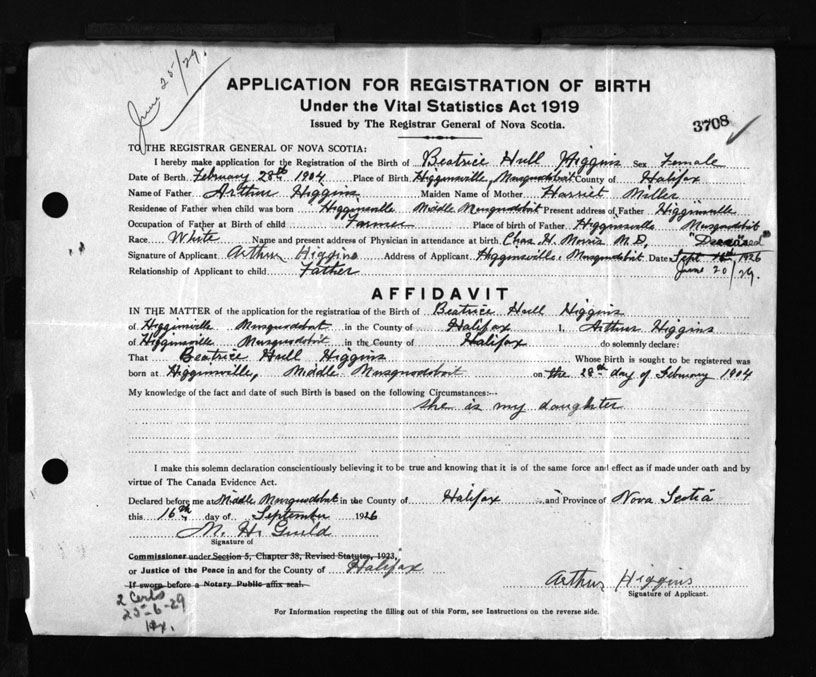 June 25/29.
APPLICATION FOR REGISTRATION OF BIRTH
Under the Vital Statistics Act 1919
Issued by The Registrar General of Nova Scotia.
3708
TO THE REGISTRAR GENERAL OF NOVA SCOTIA:
I hereby make application for the Registration of the Birth of Beatrice Hull Higgins Sex Female
Date of Birth February 28th 1904 Place of Birth Higginsville, Musquodoboit County of Halifax
Name of Father Arthur Higgins Maiden Name of Mother Harriet Miller
Residense of Father when child was born Higginsville Middle Musquodoboit Present address of Father Higginsville
Occupation of Father at Birth of child Farmer Place of birth of Father Higginsville Musquodoboit
Race White Name and present address of Physician in attendance at birth Chas. H. Morris M.D. Deceased
Signature of Applicant Arthur Higgins Address of Applicant Higginsville, Musquodoboit Date Sept 16th, 1926
Relationship of Applicant to child Father June 20/29.
AFFIDAVIT
IN THE MATTER of the application for the registration of the Birth of Beatrice Hull Higgins
of Higginsville Musquodoboit in the County of Halifax I, Arthur Higgins
of Higginsville Musquodoboit in the County of Halifax do solemnly declare:
That Beatrice Hull Higgins Whose Birth is sought to be registered was
born at Higginsville, Middle Musquodoboit on the 28th day of February 1904
My knowledge of the fact and date of such Birth is based on the following Circumstances:--
she is my daughter
I make this solemn declaration conscientiously believing it to be true and knowing that it is of the same force and effect as if made under oath and by
virtue of The Canada Evidence Act.
Declared before me at Middle Musquodoboit in the County of Halifax and Province of Nova Scotia
this 16th day of September 1926
M. H. Guild
Signature of
Commissioner under Section 5, Chapter 38, Revised Statutes, 1923,
or Justice of the Peace in and for the County of Halifax
If sworn before a Notary Public affix seal.
Arthur Higgins
Signature of Applicant.
2 Certs
25-6-29
For Information respecting the filling out of this Form, see Instructions on the reverse side.